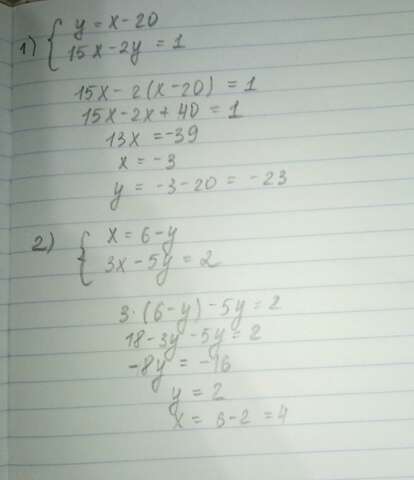 1) { y = x - 20
15x - 2y = 1
15x - 2(x - 20) = 1
15x - 2x + 40 = 1
13x = -39
x = -3
y = -3 - 20 = -23
2) { x = 6 - y
3x - 5y = 2
3 · (6 - y) - 5y = 2
18 - 3y - 5y = 2
-8y = -16
y = 2
x = 6 - 2 = 4